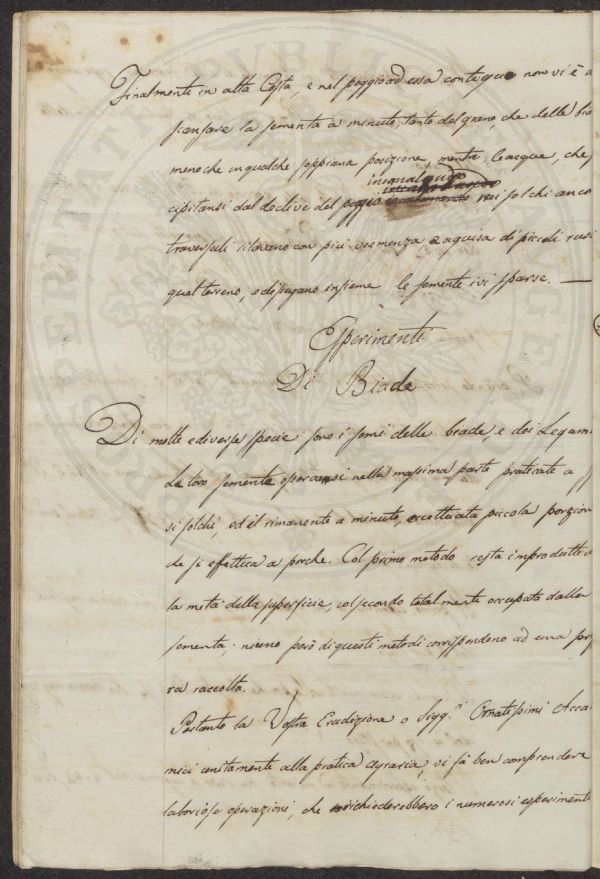 Finalmente in alta Costa, e nel poggio ad essa contiguo non vi è a
scansare la sementa a minuto, tanto del grano, che delle bia
meno che in qualche soppiana posizione, mentre le acque, che
inqualunque
cipitansi dal declive del poggio nei solchi anco
traversali rilavano con più veemenza e a guisa di piccoli rusi
quel terreno, e dispergano insieme le semente ivi sparse. —
Esperimenti
Di Biade
Di molte e diverse specie sono i semi delle biade, e dei Legum
Le loro semente osservansi nella massima parte praticate a
si solchi, ed il rimanente a minuto, eccettuata piccola porzion
che si effettua a porche. Col primo metodo resta improdutti
la metà della superficie, col secondo totalmente occupata dalla
sementa; niuno però di questi metodi corrispondono ad una pro
ra raccolta.
Pertanto la Vostra Erudizione o Sigg.ri Ornatissimi Acca
mici unitamente alla pratica agraria, vi fa ben comprendere
laboriose operazioni, che richiederebbero i numerosi esperimenti
PROSPERITATI PUBLICAE